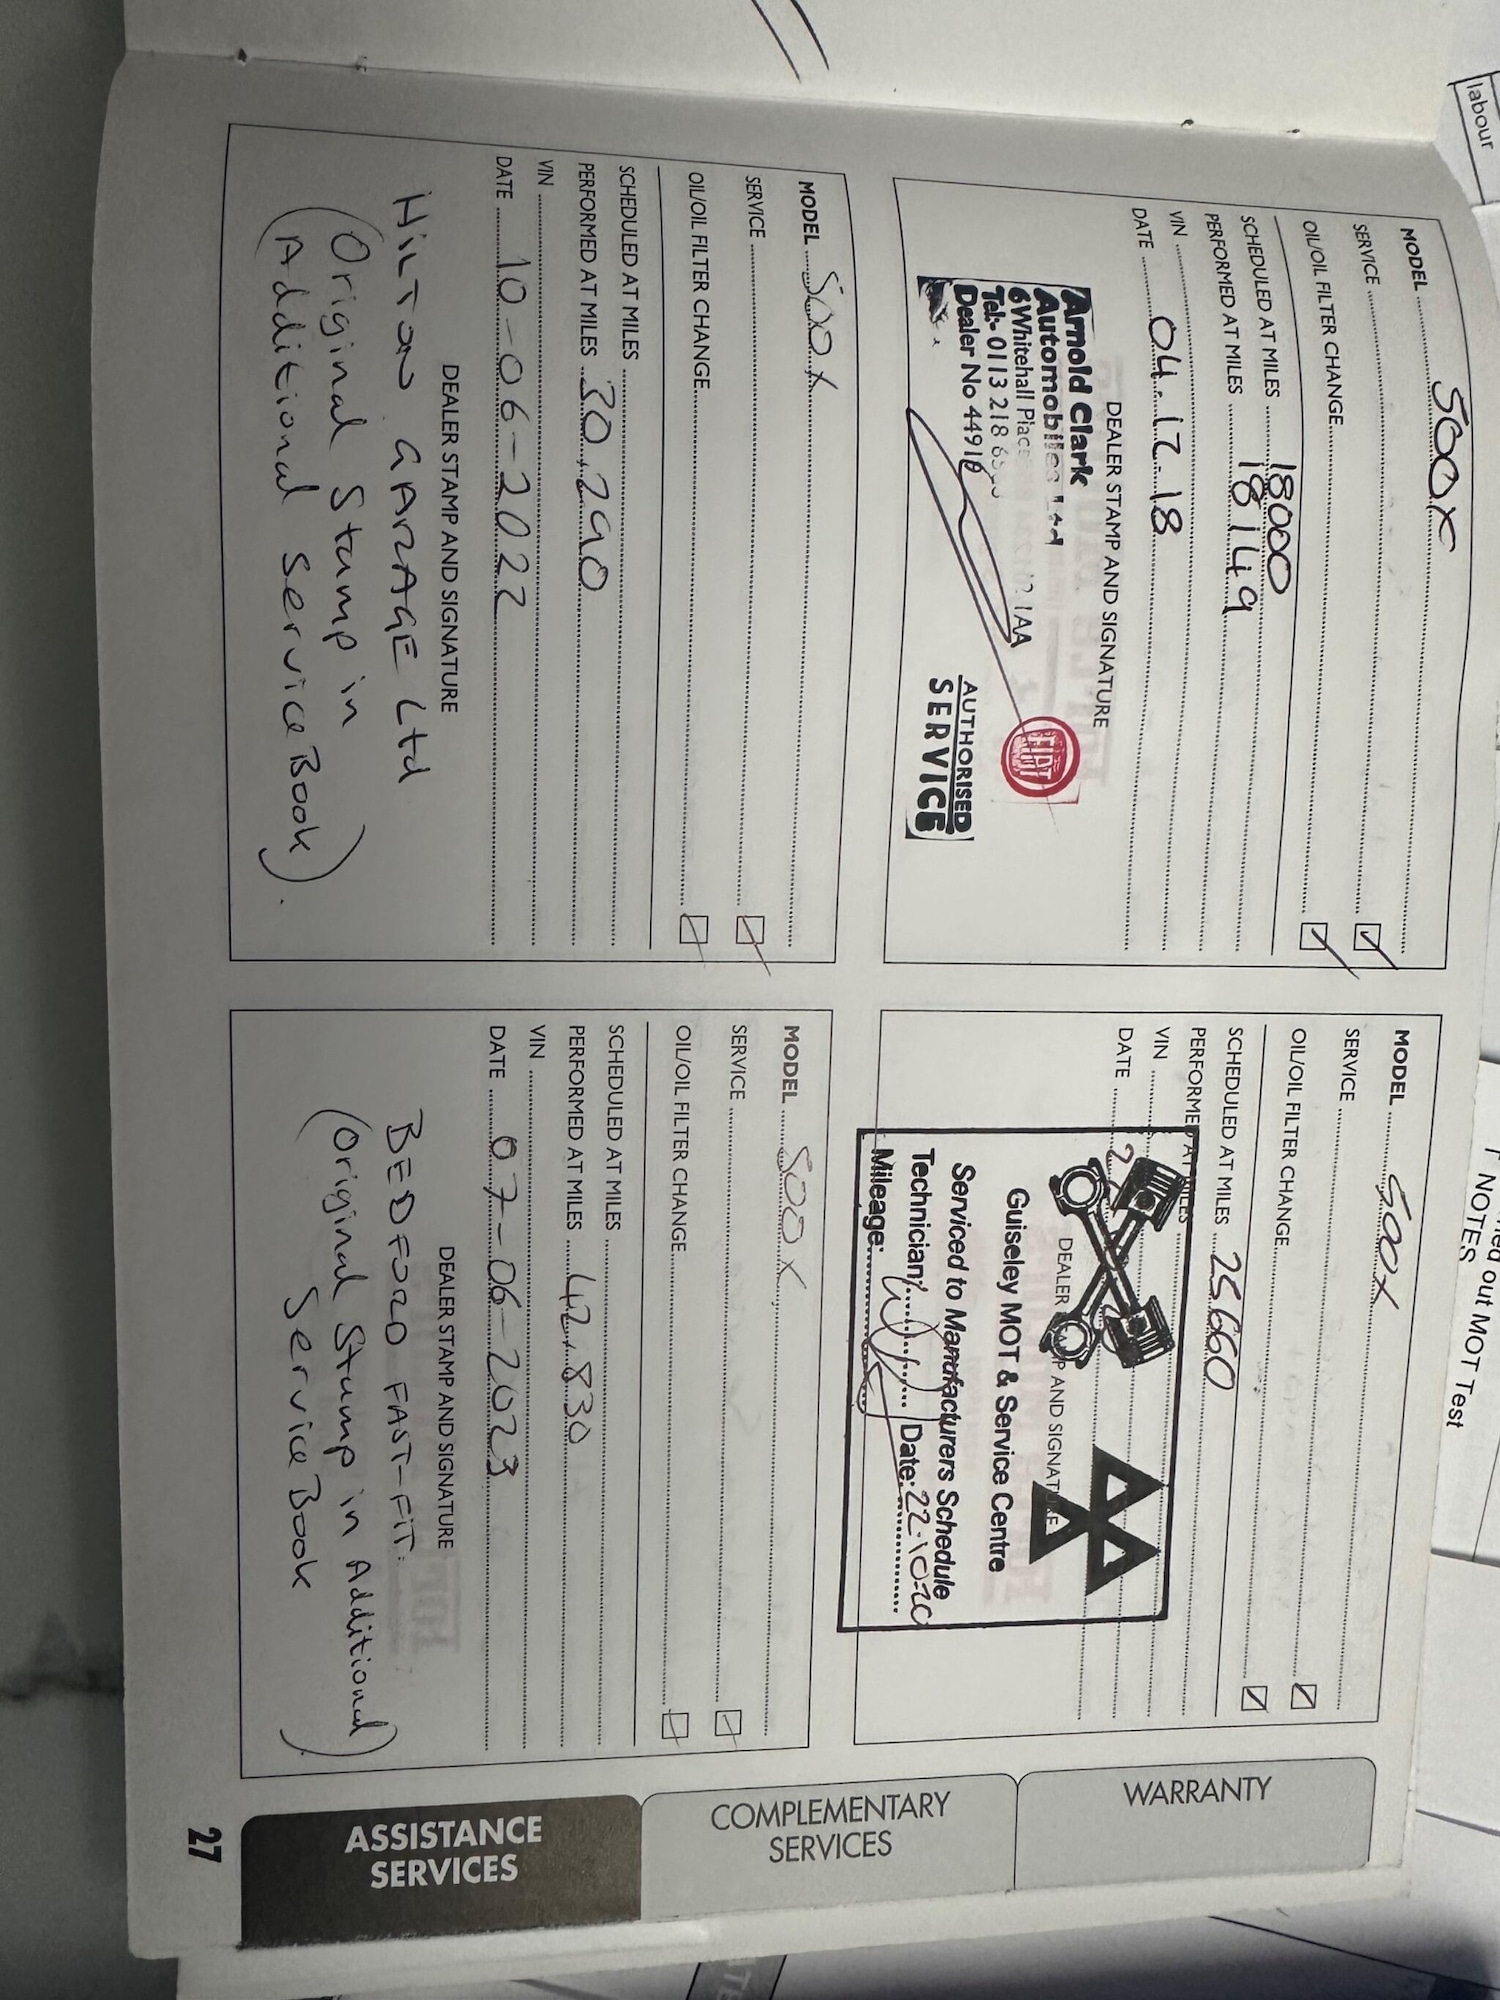 labour
ned out MOT Test
NOTES
MODEL 500X
SERVICE
OIL/OIL FILTER CHANGE
SCHEDULED AT MILES 18000
PERFORMED AT MILES 18149
VIN
DATE 04.12.18
DEALER STAMP AND SIGNATURE
Arnold Clark
Automobiles Ltd
6 Whitehall Place 1AA
Tel:- 0113 218
Dealer No 44918
FIAT
AUTHORISED
SERVICE
MODEL 500X
SERVICE
OIL/OIL FILTER CHANGE
SCHEDULED AT MILES 25660
PERFORMED AT MILES
VIN
DATE
DEALER STAMP AND SIGNATURE
Guiseley MOT & Service Centre
Serviced to Manufacturers Schedule
Technician: Date: 22.10.20
Mileage:
MODEL 500X
SERVICE
OIL/OIL FILTER CHANGE
SCHEDULED AT MILES
PERFORMED AT MILES 30,290
VIN
DATE 10-06-2022
DEALER STAMP AND SIGNATURE
HILTON GARAGE Ltd
(Original Stamp in
Additional Service Book).
MODEL 500X
SERVICE
OIL/OIL FILTER CHANGE
SCHEDULED AT MILES
PERFORMED AT MILES 42,830
VIN
DATE 07-06-2023
DEALER STAMP AND SIGNATURE
BEDFORD FAST-FIT.
(Original Stamp in Additional
Service Book)
WARRANTY
COMPLEMENTARY
SERVICES
ASSISTANCE
SERVICES
27